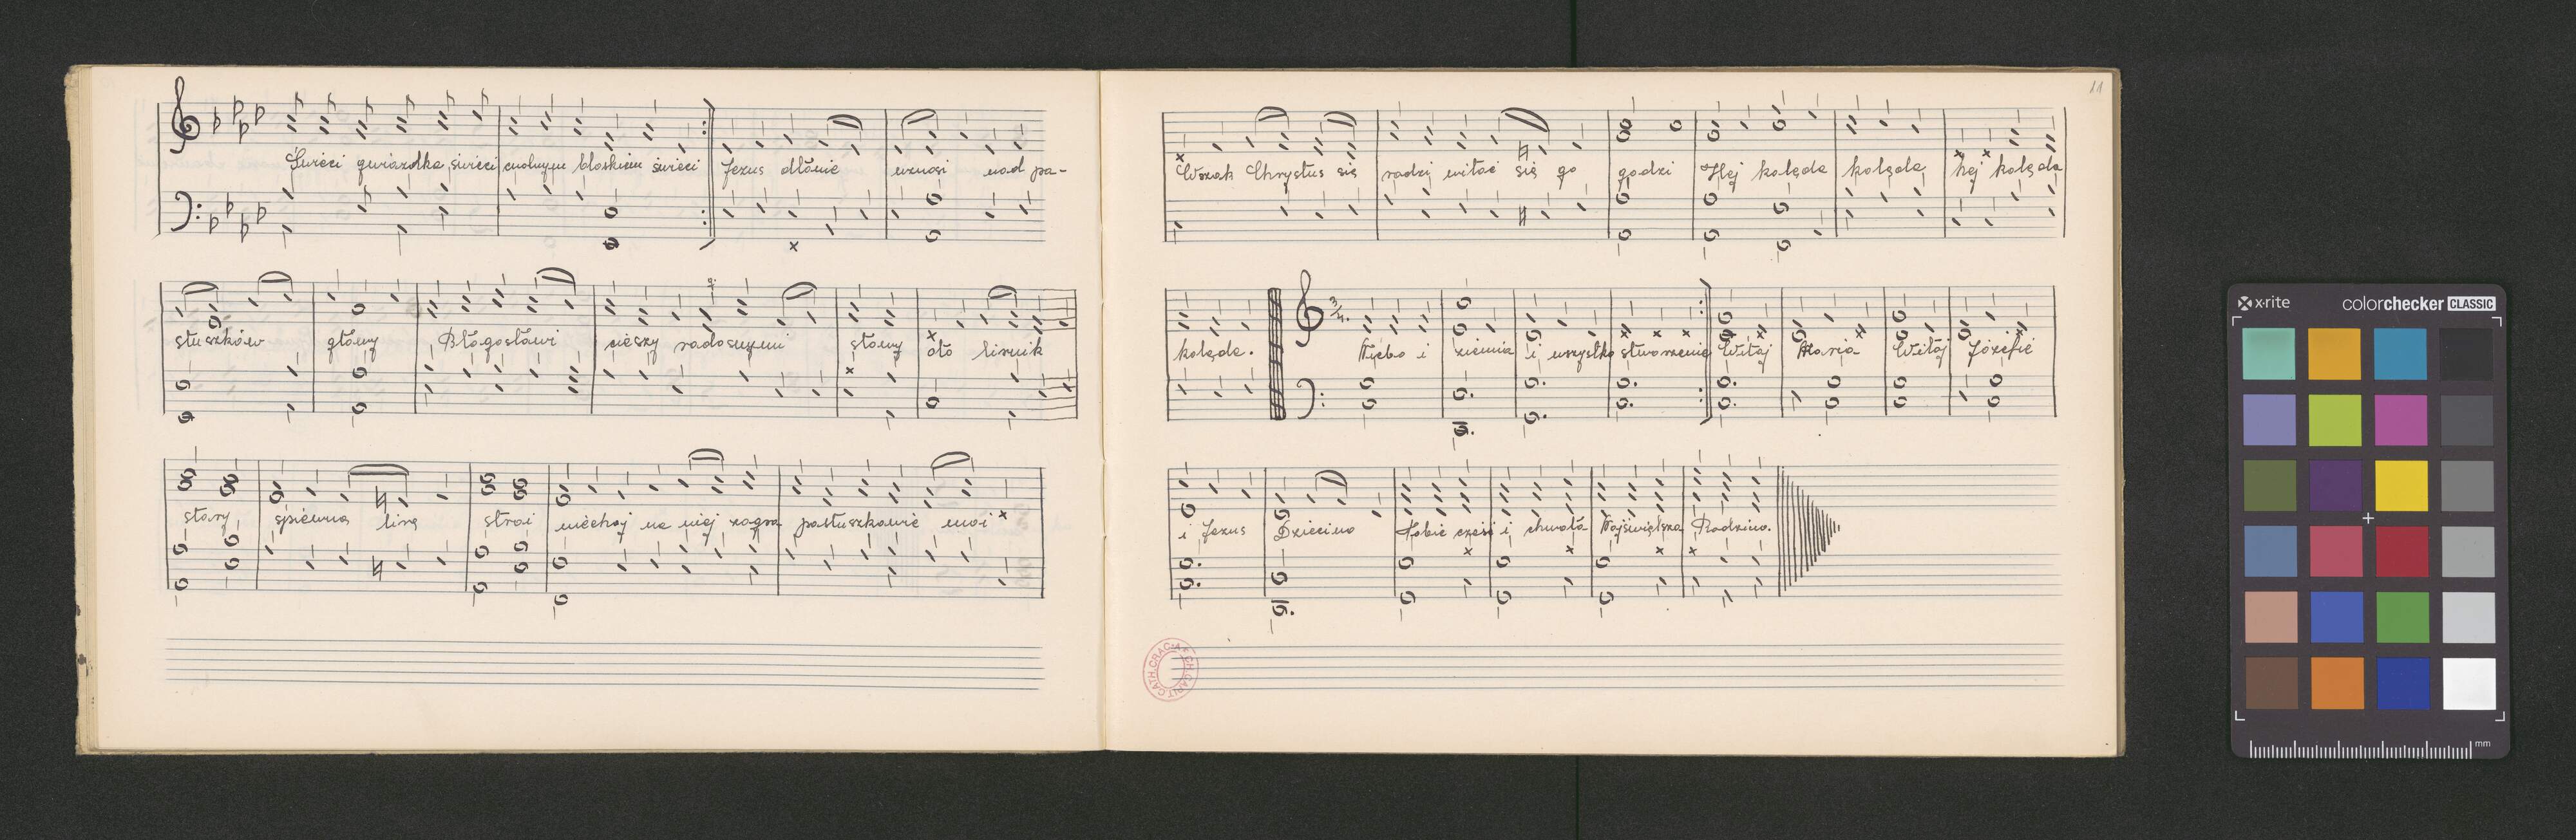 Świeci gwiazdka, świeci cudnym blaskiem świeci Jezus dłonie wznosi nad pa-
stuszków głowy Błogosławi cieszy radosnymi słowy oto lirnik
stary śpiewną lirę stroi niechaj na niej zagra pastuszkowie moi
11
Wszak Chrystus się rodzi witać się go godzi Hej kolęda kolęda hej kolęda
kolęda. Niebo i ziemia i wszystko stworzenie Witaj Maria Witaj Józefie
3/4.
i Jezus Dziecino Tobie cześć i chwała Najświętsza Rodzino.
CATH.CRAC.
CAPIT.
x-rite
colorchecker CLASSIC
mm